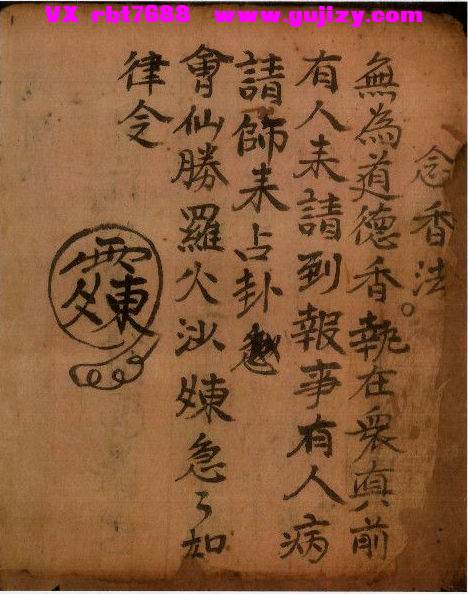 VX rbt7688 www.gujizy.com
念香法
無為道德香。執在衆真前
有人来請到報事有人病
請師来占卦
會仙勝羅火沙急々如
律令